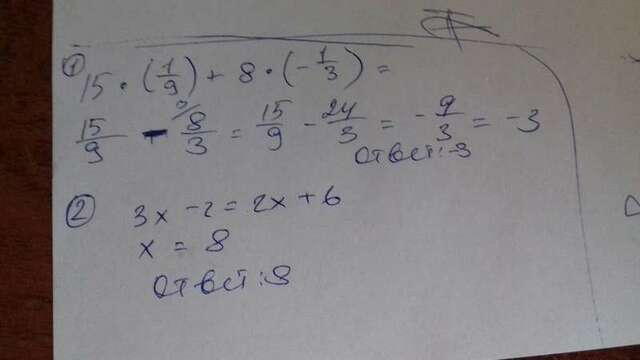 ① 15 · (1/9) + 8 · (-1/3) =
15/9 - 8/3 = 15/9 - 24/3 = -9/3 = -3
Ответ: -3
② 3x - 2 = 2x + 6
x = 8
Ответ: 8